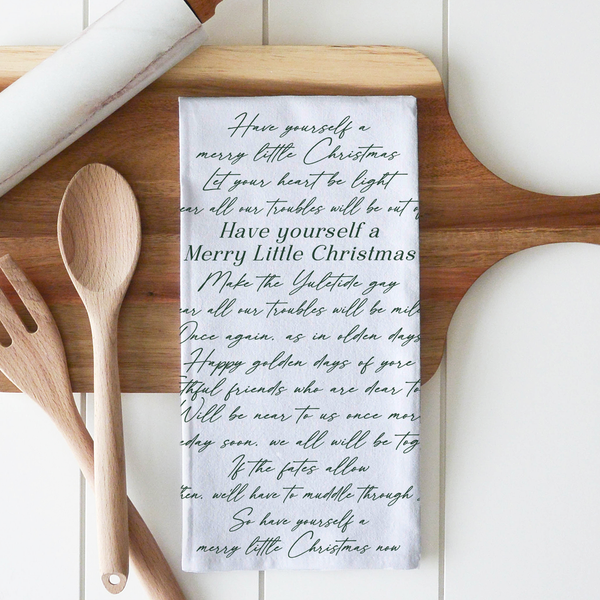 Have yourself a
merry little Christmas
Let your heart be light
ear all our troubles will be out o
Have yourself a
Merry Little Christmas
Make the Yuletide gay
ear all our troubles will be mil
Once again, as in olden days
Happy golden days of yore
thful friends who are dear to
Will be near to us once mor
eday soon, we all will be tog
If the fates allow
then, we'll have to muddle through
So have yourself a
merry little Christmas now